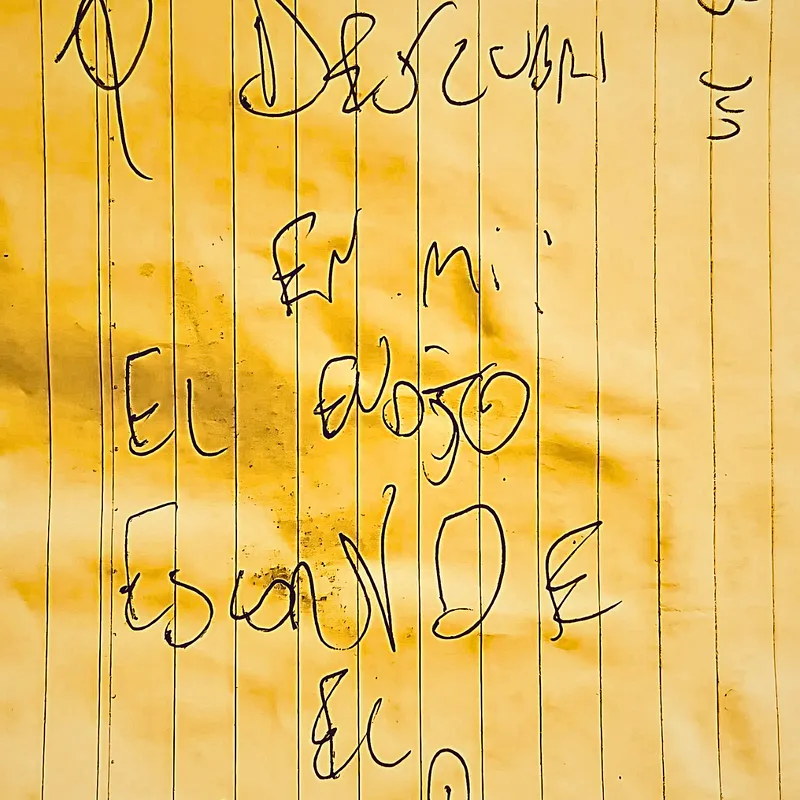 Q DESCUBRI
EN MI:
EL ENOJO
ESCONDE
EL